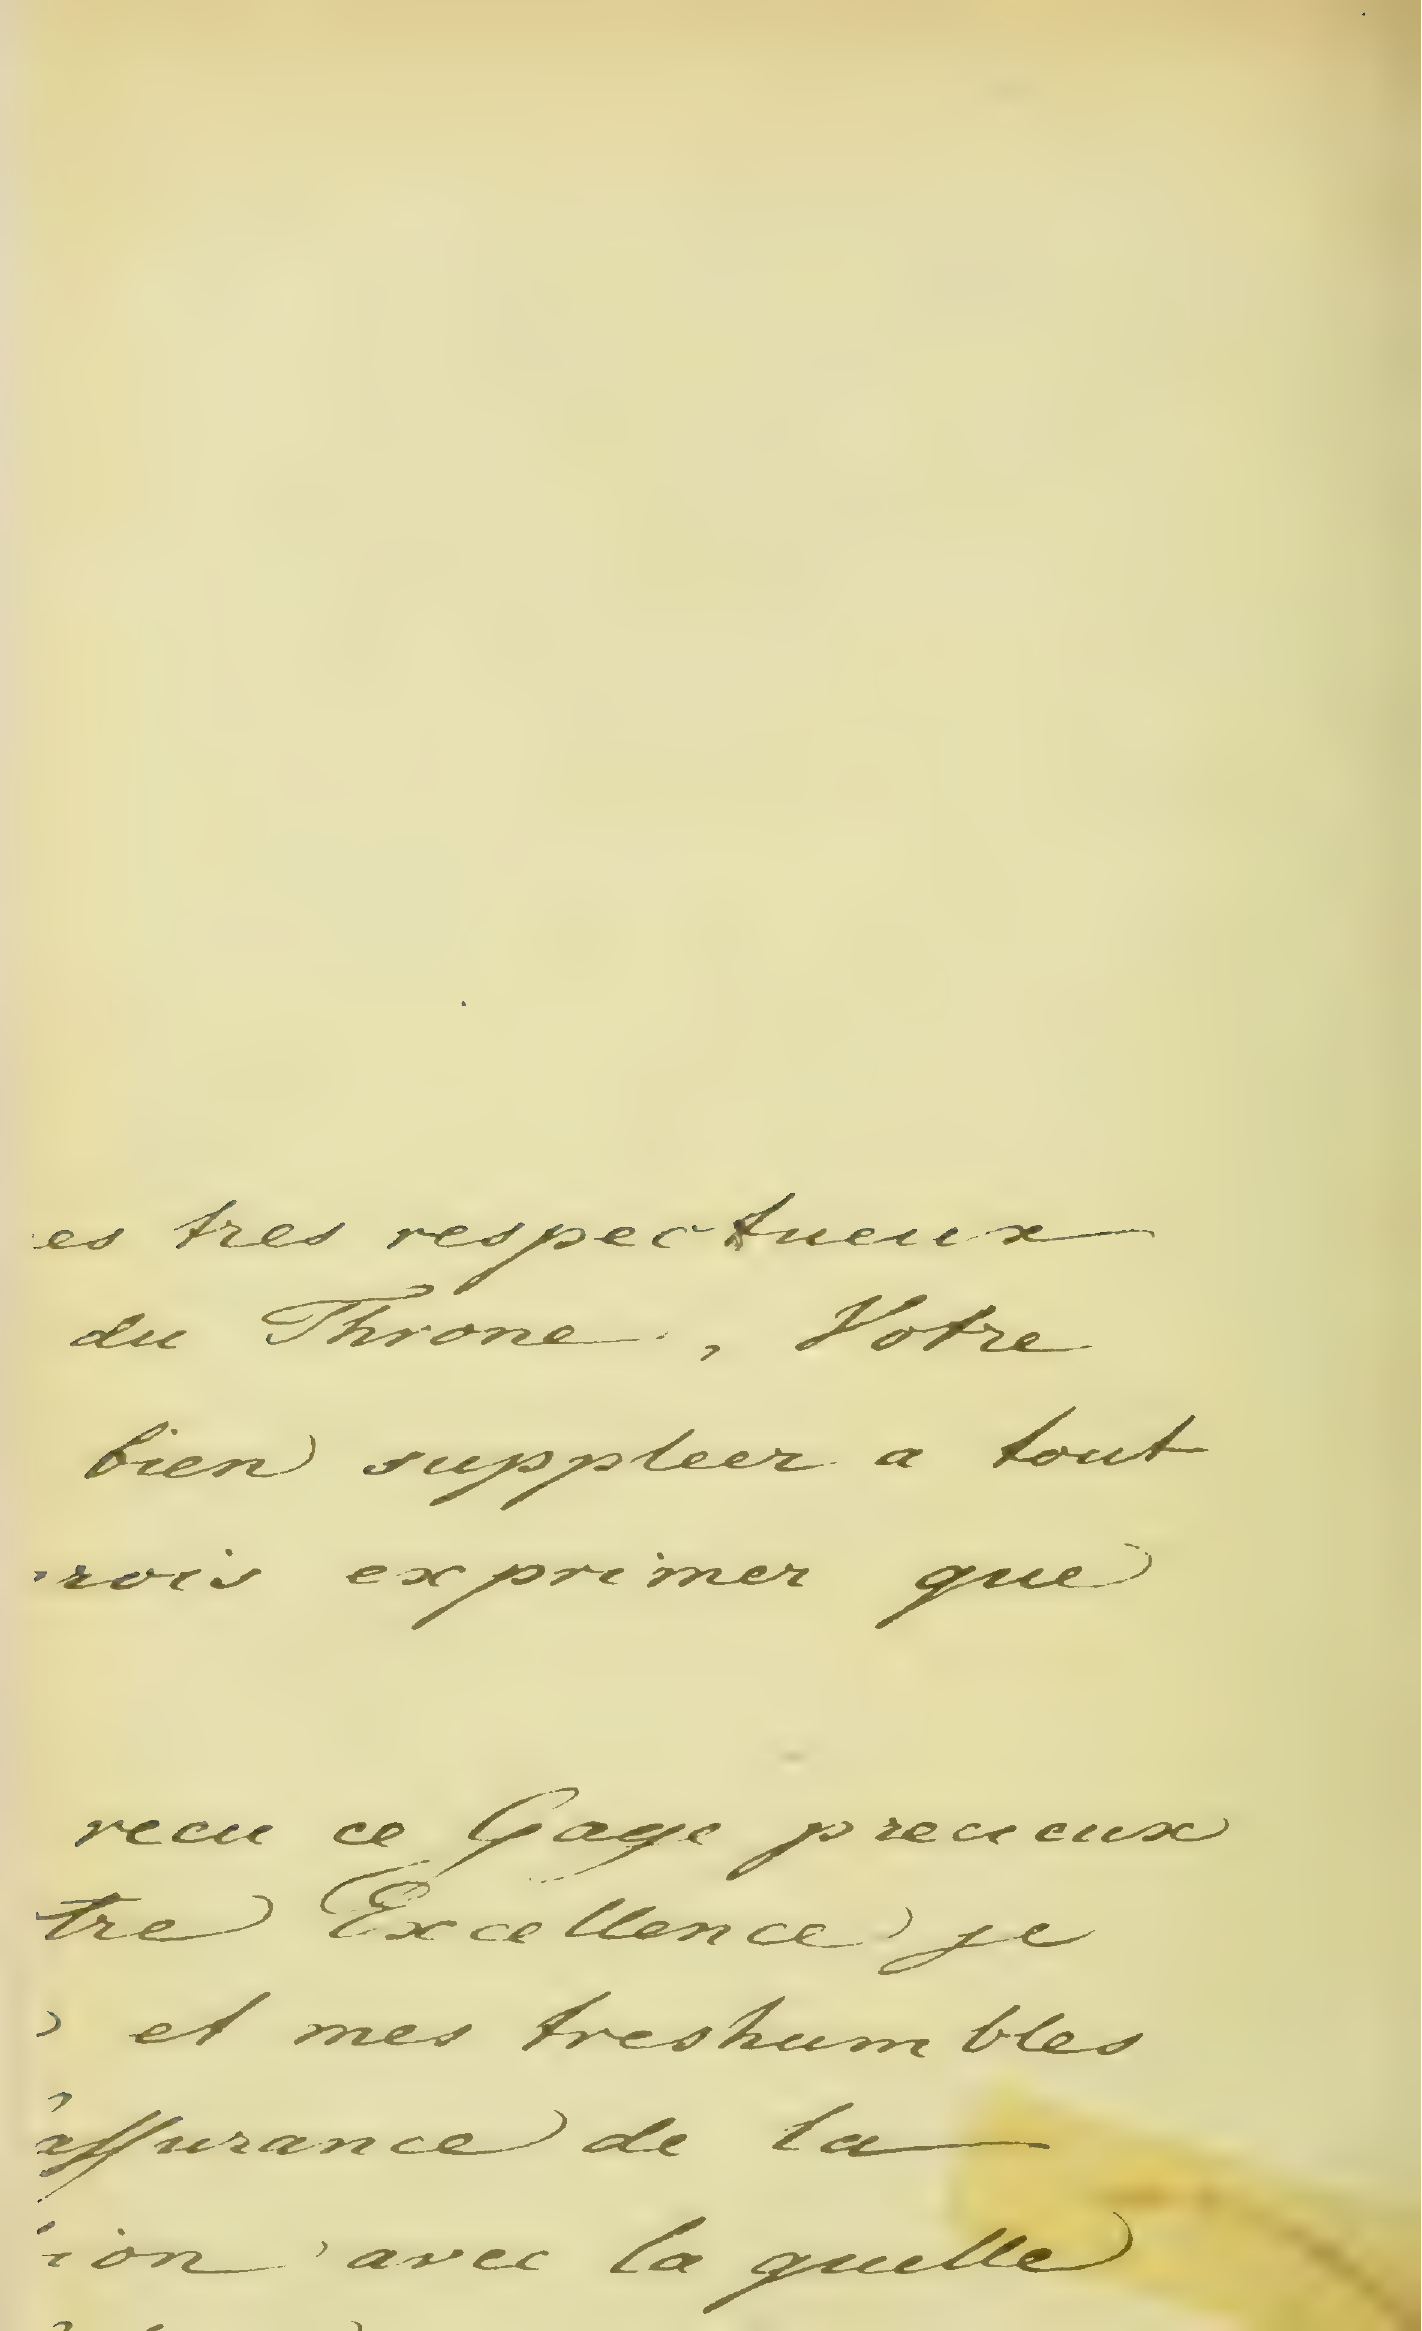 es tres respectueux
du Throne, Votre
bien suppleer a tout
rois exprimer que
recu ce Gage precieux
tre Excellence je
et mes treshumbles
assurance de la
ion avec la quelle